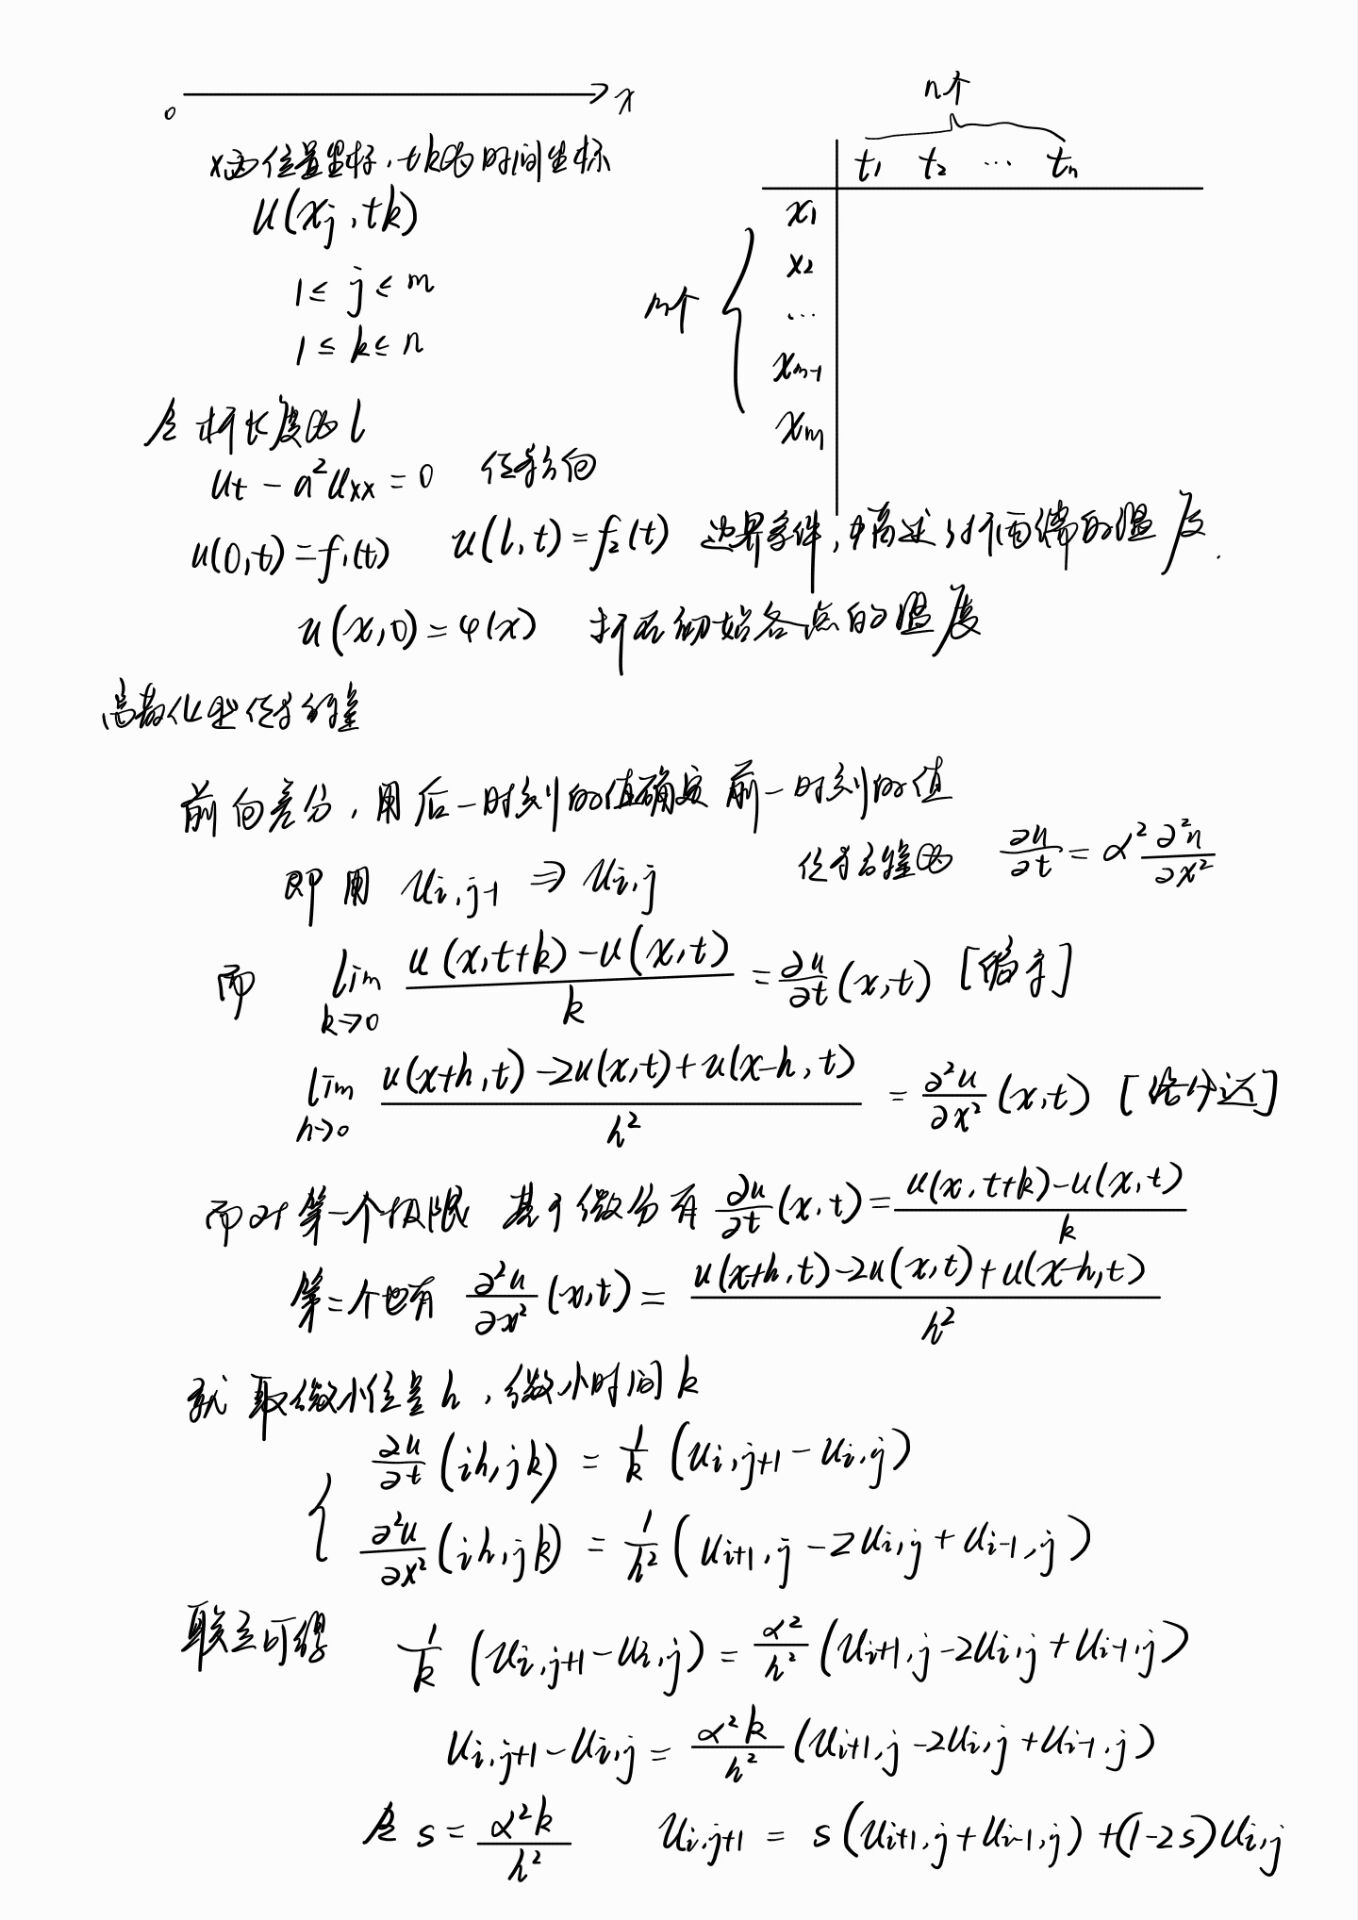 0 x
x为位置坐标，tk为时间坐标
u(xj, tk)
1 ≤ j ≤ m
1 ≤ k ≤ n
n个
t₁ t₂ … tₙ
m个
x₁
x₂
…
xₘ₋₁
xₘ
令 杆长度为 l
ut - a²uxx = 0
u(0,t) = f₁(t) u(l,t) = f₂(t) 边界条件, 描述了杆两端的温度.
u(x,0) = φ(x) 杆在初始各点的温度
离散化
前向差分，用后一时刻的值确定前一时刻的值
即用 uᵢ,ⱼ₋₁ ⇒ uᵢ,ⱼ
∂u/∂t = α² ∂²u/∂x²
而 lim k→0 (u(x,t+k) - u(x,t))/k = ∂u/∂t (x,t) [偏导]
lim h→0 (u(x+h,t) - 2u(x,t) + u(x-h,t))/h² = ∂²u/∂x² (x,t) [洛必达]
而对第一个极限 基于微分有 ∂u/∂t (x,t) = (u(x,t+k) - u(x,t))/k
第二个也有 ∂²u/∂x² (x,t) = (u(x+h,t) - 2u(x,t) + u(x-h,t))/h²
就取微小位置h，微小时间k
∂u/∂t (ih,jk) = 1/k (uᵢ,ⱼ₊₁ - uᵢ,ⱼ)
∂²u/∂x² (ih,jk) = 1/h² (uᵢ₊₁,ⱼ - 2uᵢ,ⱼ + uᵢ₋₁,ⱼ)
联立可得 1/k (uᵢ,ⱼ₊₁ - uᵢ,ⱼ) = α²/h² (uᵢ₊₁,ⱼ - 2uᵢ,ⱼ + uᵢ₋₁,ⱼ)
uᵢ,ⱼ₊₁ - uᵢ,ⱼ = α²k/h² (uᵢ₊₁,ⱼ - 2uᵢ,ⱼ + uᵢ₋₁,ⱼ)
令 s = α²k/h² uᵢ,ⱼ₊₁ = s(uᵢ₊₁,ⱼ + uᵢ₋₁,ⱼ) + (1-2s)uᵢ,ⱼ